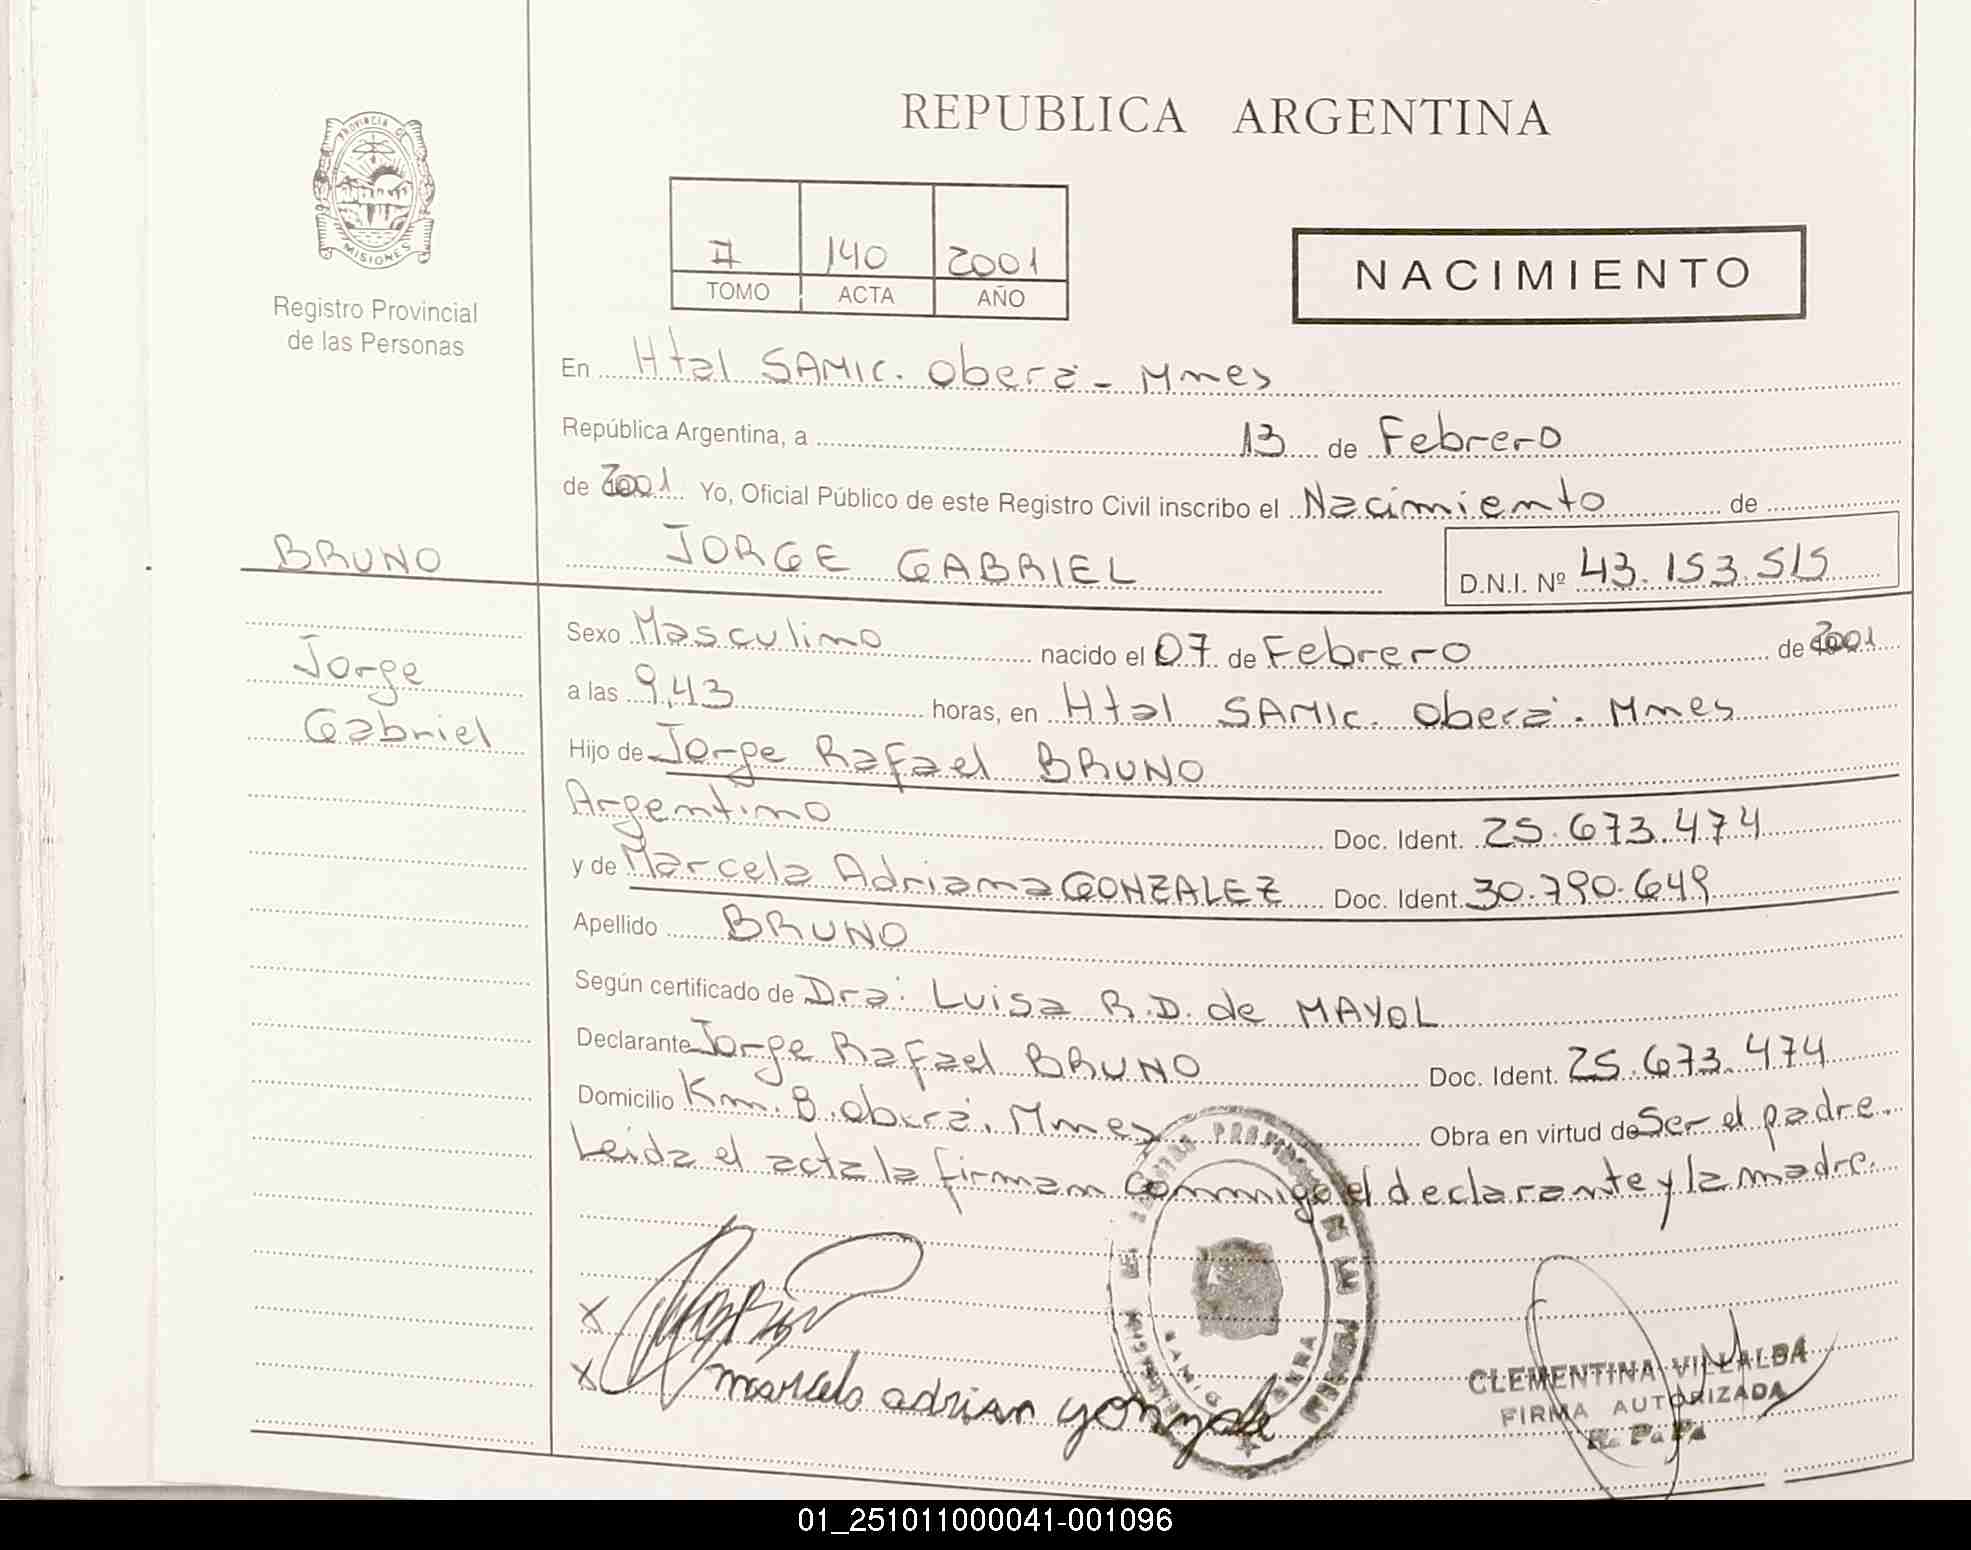 REPUBLICA ARGENTINA
PROVINCIA
MISIONES
Registro Provincial
de las Personas
140 2001
TOMO ACTA AÑO
NACIMIENTO
En Htal SAMIC. Oberá - Mnes
República Argentina, a 13 de Febrero
de 2001 Yo, Oficial Público de este Registro Civil inscribo el Nacimiento de
BRUNO
JORGE GABRIEL D.N.I. Nº 43.153.515
Sexo Masculino nacido el 07 de Febrero de 2001
Jorge
a las 9,43 horas, en Htal SAMIC. Oberá. Mnes
Gabriel
Hijo de Jorge Rafael BRUNO
Argentino Doc. Ident. 25.673.474
y de Marcela Adriana GONZALEZ Doc. Ident. 30.790.649
Apellido BRUNO
Según certificado de Dra: Luisa R.D. de MAYOL
Declarante Jorge Rafael BRUNO Doc. Ident. 25.673.474
Domicilio Km. 8. Oberá. Mnes Obra en virtud de Ser el padre.
Leida el acta la firman conmigo el declarante y la madre.
X
X marcela adrian gonzale
CLEMENTINA VILLALBA
FIRMA AUTORIZADA
01_251011000041-001096